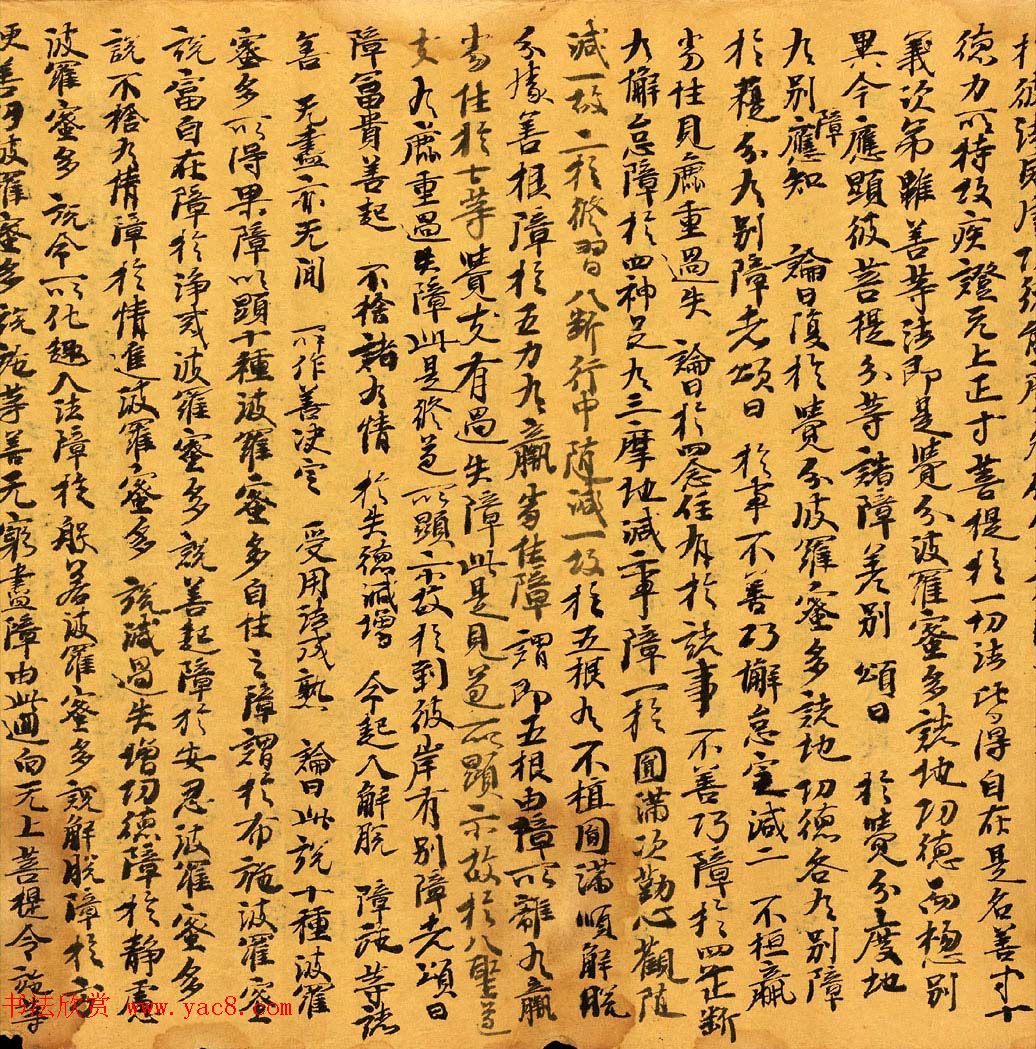 德力所持故疾證无上正等菩提於一切法皆得自在是名善等十
義次第雖善等法即是覺分波羅蜜多諸地功德而總別
異今應顯彼菩提分等諸障差別 頌曰 於覺分度地
有別障應知 論曰復於覺分波羅蜜多諸地功德各有別障
於覺分有別障者頌曰 於事不善巧懈怠定減二 不植羸
劣性見麁重過失 論曰於四念住有於諸事不善巧障於四正斷
有懈怠障於四神足有三摩地減二事障一於圓滿欲勤心觀隨
減一故二於修習八斷行中隨減一故於五根有不植圓滿順解脫
分勝善根障於五力有羸劣性障謂即五根由障所雜有羸
劣性於七等覺支有過失障此是見道所顯示故於八聖道
支有麁重過失障此是修道所顯示故於到彼岸有別障者頌曰
障富貴善趣 不捨諸有情 於失德減增 令趣入解脫 障施等諸
善 无盡亦无間 所作善決定 受用法成熟 論曰此說十種波羅
蜜多所得果障以顯十種波羅蜜多自性之障謂於布施波羅蜜
說富自在障於淨戒波羅蜜多說善趣障於安忍波羅蜜多
說不捨有情障於情進波羅蜜多 說減過失增功德障於靜慮
波羅蜜多 說令所化趣入法障於般若波羅蜜多說解脫障於方
便善巧波羅蜜多說施等善无窮盡障由此迴向无上菩提令施等
书法欣赏 www.yac8.com